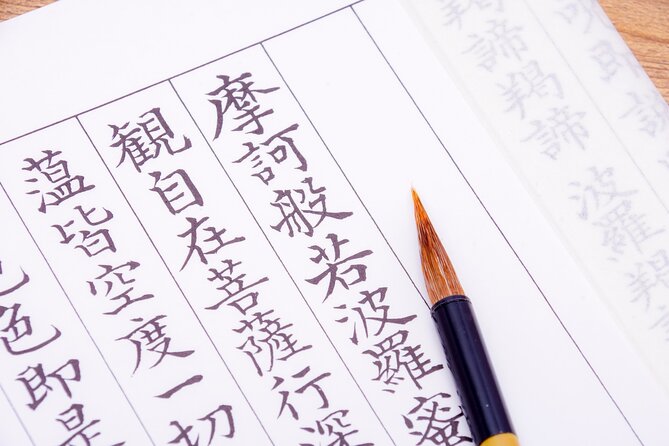 呪即説
羯諦羯諦 波羅羯
摩訶般若波羅蜜
観自在菩薩行深
薀皆空度一切
色即是